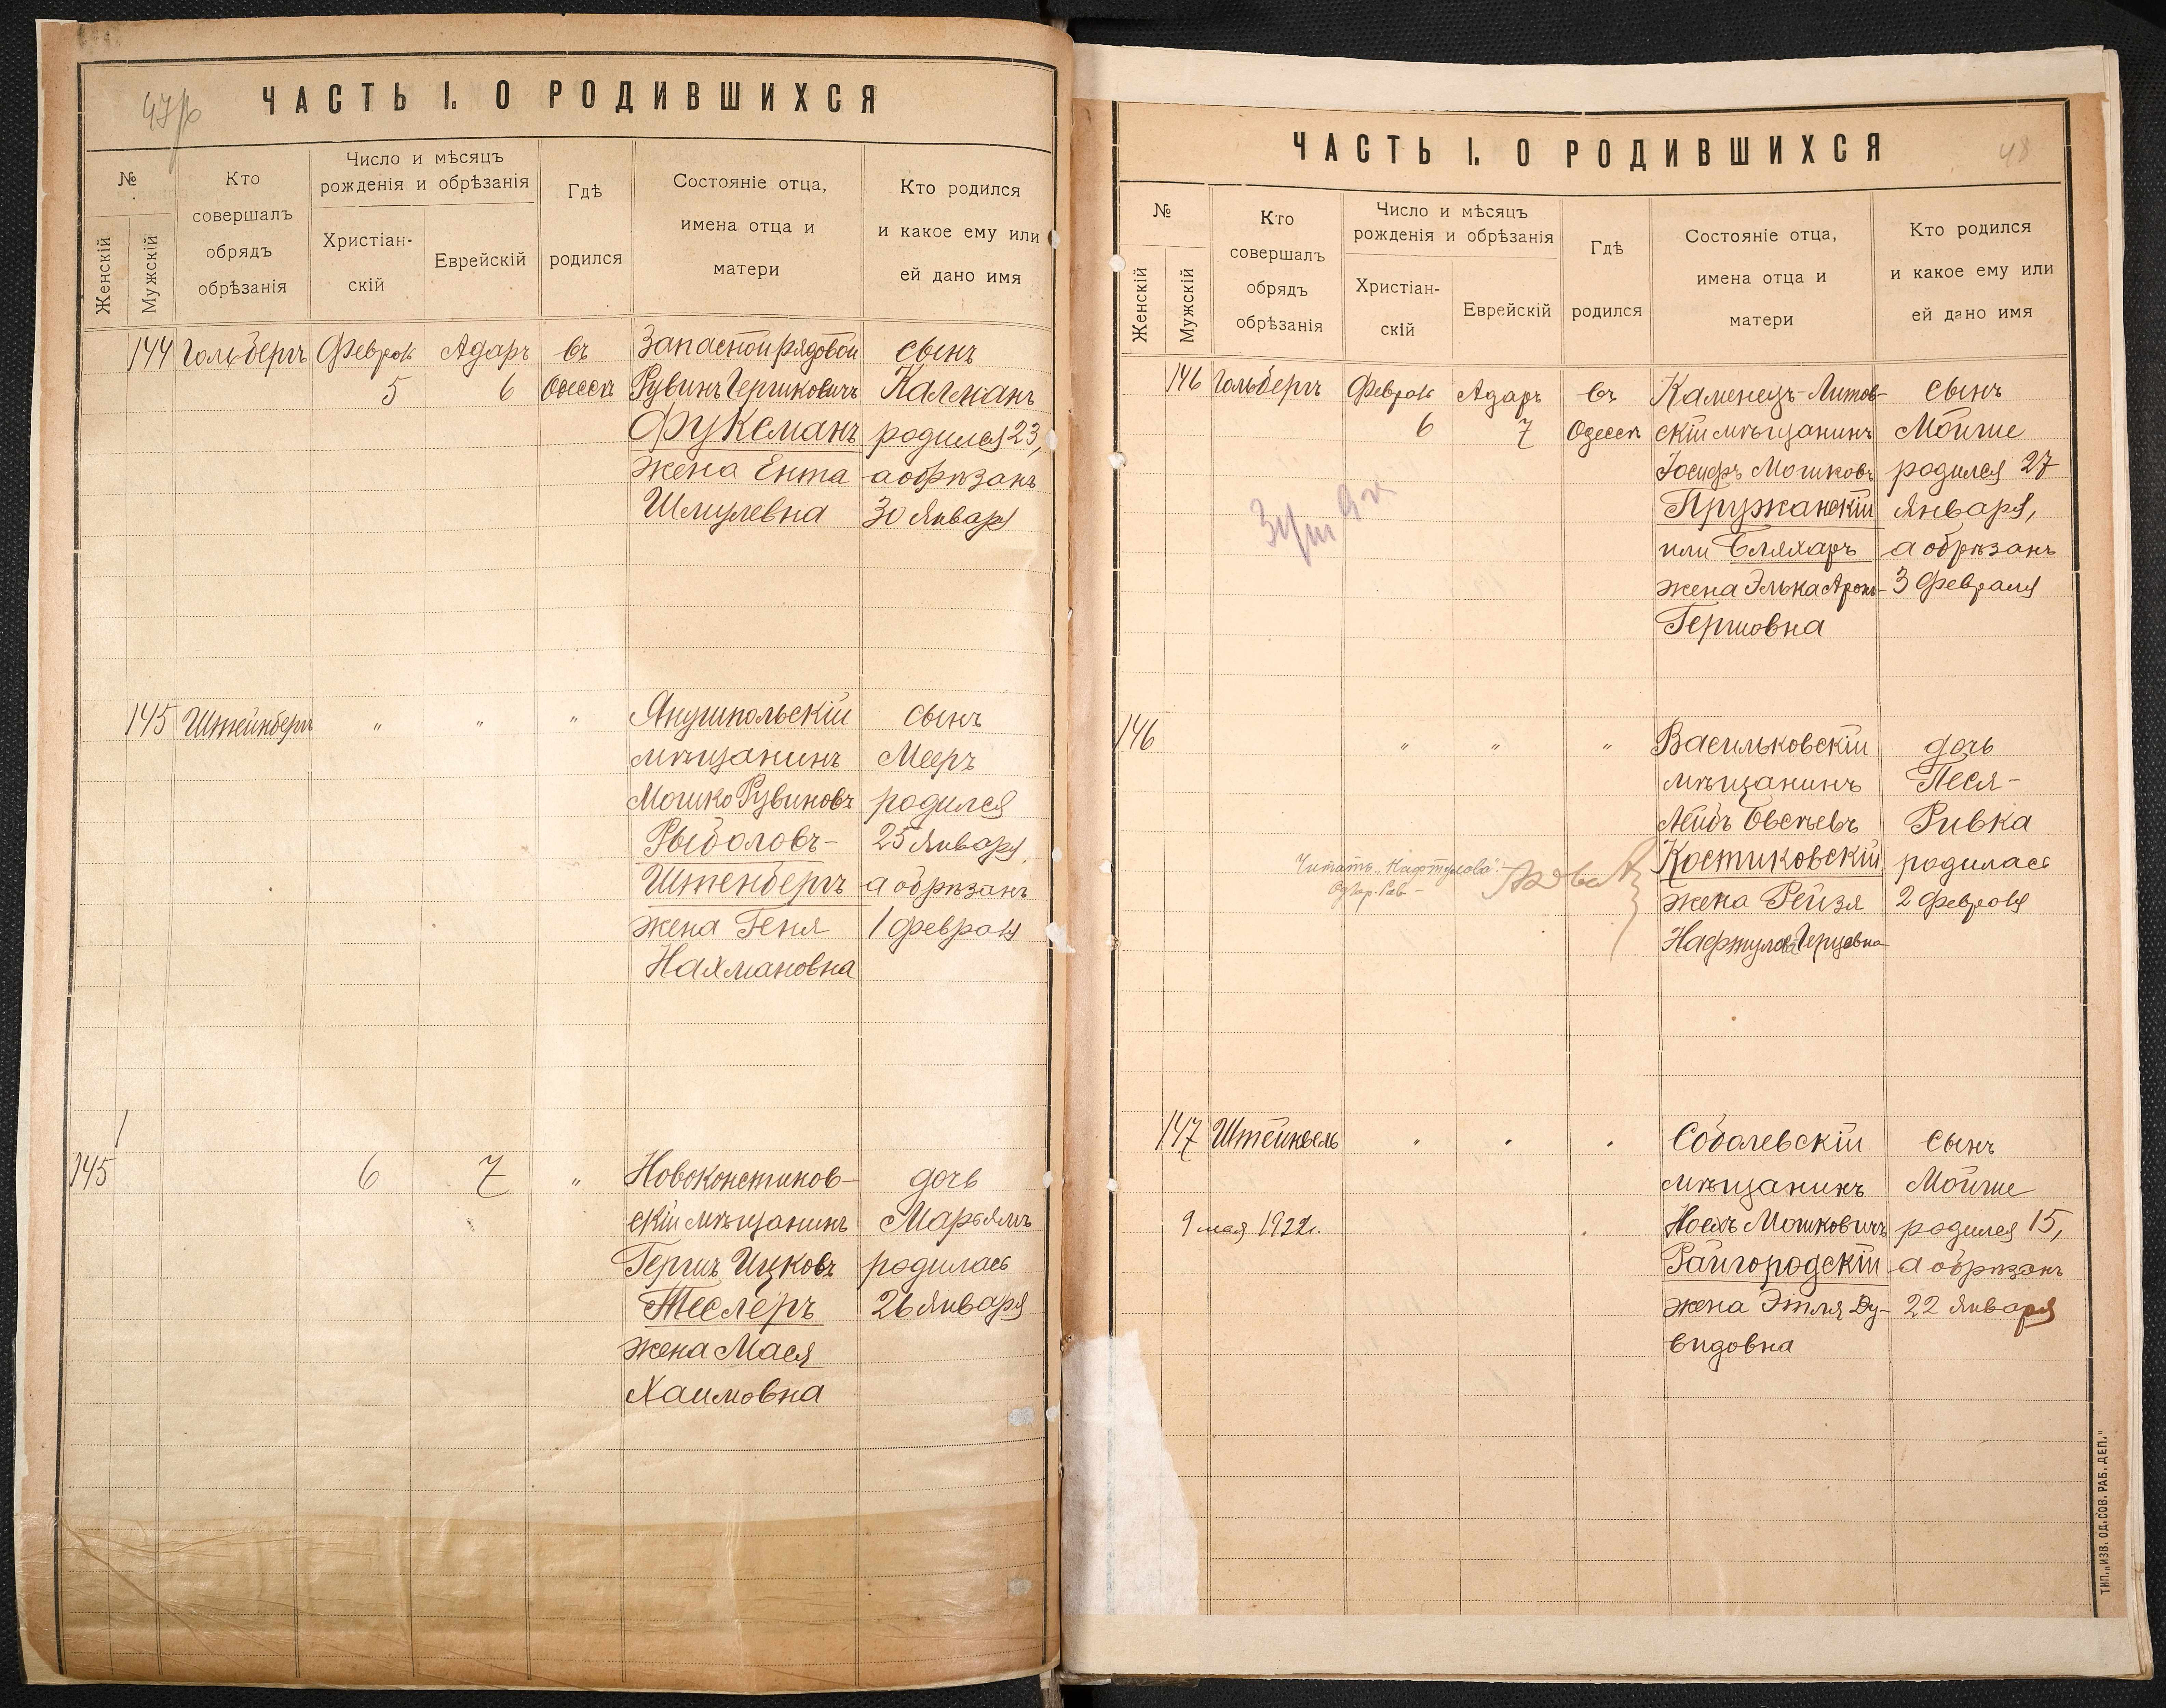 47р
ЧАСТЬ I. О РОДИВШИХСЯ
№
Женскій
Мужскій
Кто
совершалъ
обрядъ
обрѣзанія
Число и мѣсяцъ
рожденія и обрѣзанія
Христіан-
скій
Еврейскій
Гдѣ
родился
Состояніе отца,
имена отца и
матери
Кто родился
и какое ему или
ей дано имя
144 Гольбергъ Февраля Адаръ въ Запасной рядовой сынъ
5 6 Одессѣ Рувинъ Гершковичъ Калманъ
Фуксманъ родился 23,
жена Ента а обрѣзанъ
Шмулевна 30 Января
145 Штейнбергъ " " " Янушпольскій сынъ
мѣщанинъ Мееръ
Мошко Рувиновъ родился
Рыболовъ- 25 Января,
Штенбергъ а обрѣзанъ
жена Геня 1 февраля
Нахмановна
145 6 7 " Новоконстинов- дочь
скій мѣщанинъ Марьямъ
Гершъ Ицковъ родилась
Теслеръ 26 Января
жена Мася
Хаимовна
ЧАСТЬ I. О РОДИВШИХСЯ
48
№
Женскій
Мужскій
Кто
совершалъ
обрядъ
обрѣзанія
Число и мѣсяцъ
рожденія и обрѣзанія
Христіан-
скій
Еврейскій
Гдѣ
родился
Состояніе отца,
имена отца и
матери
Кто родился
и какое ему или
ей дано имя
146 Гольбергъ Февраля Адаръ въ Каменецъ-Литов- сынъ
6 7 Одессѣ скій мѣщанинъ Мойше
Іосифъ Мошковъ родился 27
Пружанскій Января,
или Бляхаръ а обрѣзанъ
жена Элька Аронъ- 3 Февраля
Гершовна
146 " " " Васильковскій дочь
мѣщанинъ Песя-
Лейбъ Овсѣевъ Ривка
Костиковскій родилась
Читать „Нафтулова"
жена Рейзя 2 Февраля
Нафтулова Герцовна
147 Штейнвель " " " Соболевскій сынъ
мѣщанинъ Мойше
9 мая 1922г. Носхъ Мошковичъ родился 15,
Райгородскій а обрѣзанъ
жена Этля Ду- 22 Января
видовна
ТИП. „ИЗВ. ОД. СОВ. РАБ. ДЕП."